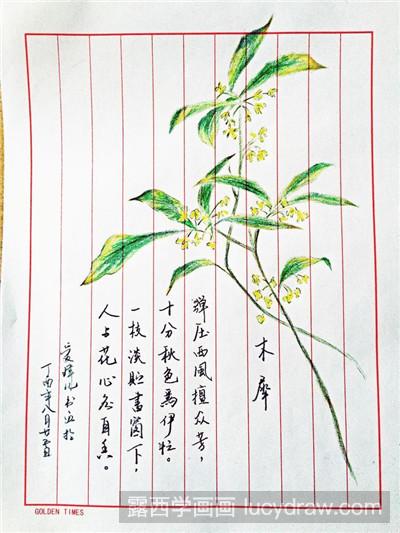 木犀
彈压西風擅众芳，
十分秋色為伊忙。
一枝淡贮書窗下，
人与花心各自香。
丁酉年八月廿五日
GOLDEN TIMES
露西学画画 lucydraw.com